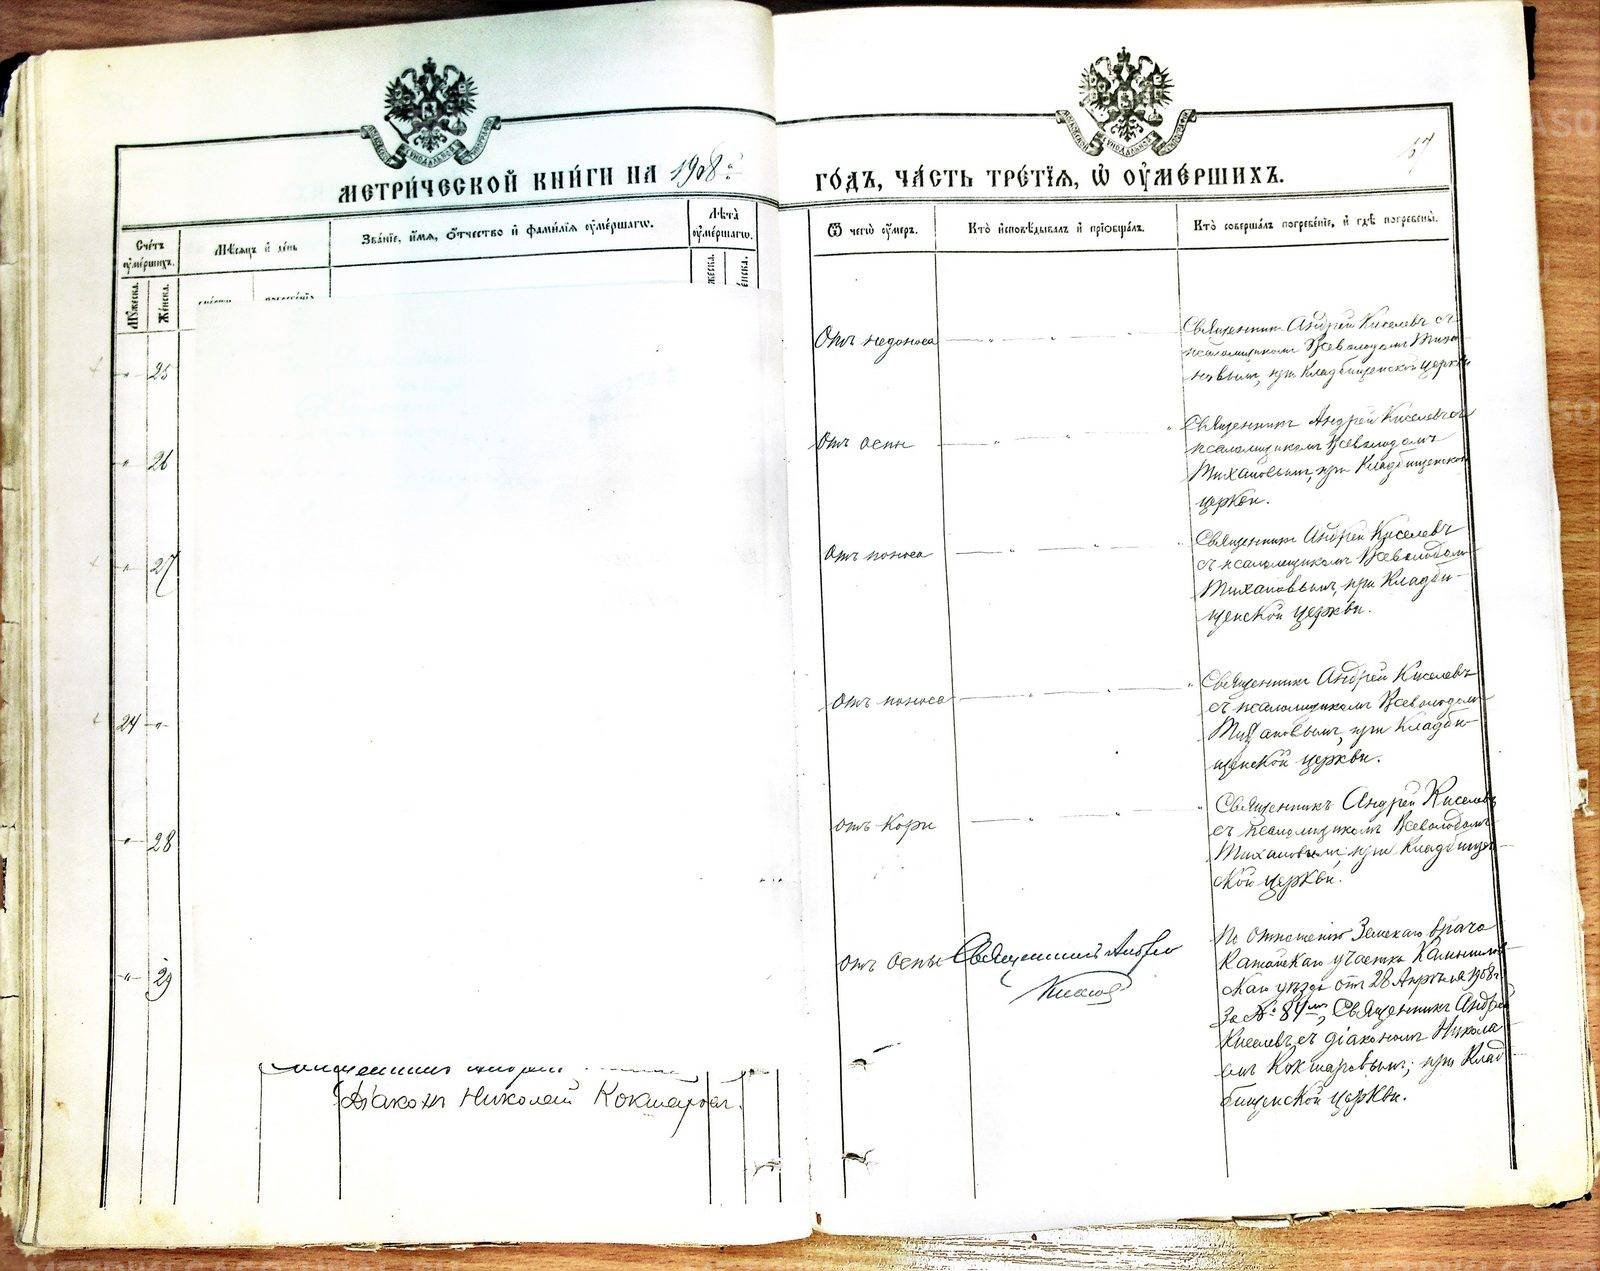 МЕТРИ́ЧЕСКОЙ КНИ́ГИ НА 1908 й
ГО́ДЪ, ЧА́СТЬ ТРЕ́ТІЯ, Ѡ ОУМЕ́РШИХЪ.
Сче́тъ оуме́ршихъ.
Мѣ́сяцъ и де́нь
Зва́ніе, и́мя, о́тчество и фами́лія оуме́ршагѡ.
Лѣ́та оуме́ршагѡ.
Ѿ чегѡ̀ оу́меръ.
Кто̀ исповѣ́дывалъ и пріобща́лъ.
Кто̀ соверша́лъ погребе́ніе, и гдѣ̀ погребены̀.
Му́жеска.
Же́нска.
25
Отъ недоноса
Священникъ Андрей Киселевъ съ
псаломщикомъ Всеволодомъ Тиха-
новымъ, при Кладбищенской церкви
26
Отъ оспы
Священникъ Андрей Киселевъ съ
псаломщикомъ Всеволодомъ
Тихановымъ, при Кладбищенской
церкви.
27
Отъ поноса
Священникъ Андрей Киселевъ
съ псаломщикомъ Всеволодомъ
Тихановымъ, при Кладби-
щенской церкви.
24
Отъ поноса
Священникъ Андрей Киселевъ
съ псаломщикомъ Всеволодомъ
Тихановымъ, при Кладби-
щенской церкви.
28
Отъ кори
Священникъ Андрей Киселевъ
съ псаломщикомъ Всеволодомъ
Тихановымъ, при Кладбищен-
ской церкви.
29
Отъ оспы
Священникъ Андрей
Киселевъ
По отношенію Земскаго врача
Катайскаго участка Камышлов-
скаго уѣзда отъ 28 Апрѣля 1908 г.
За № 84, Священникъ Андрей
Киселевъ съ діакономъ Никола-
емъ Кокшаровымъ, при Клад-
бищенской церкви.
Діаконъ Николай Кокшаровъ.